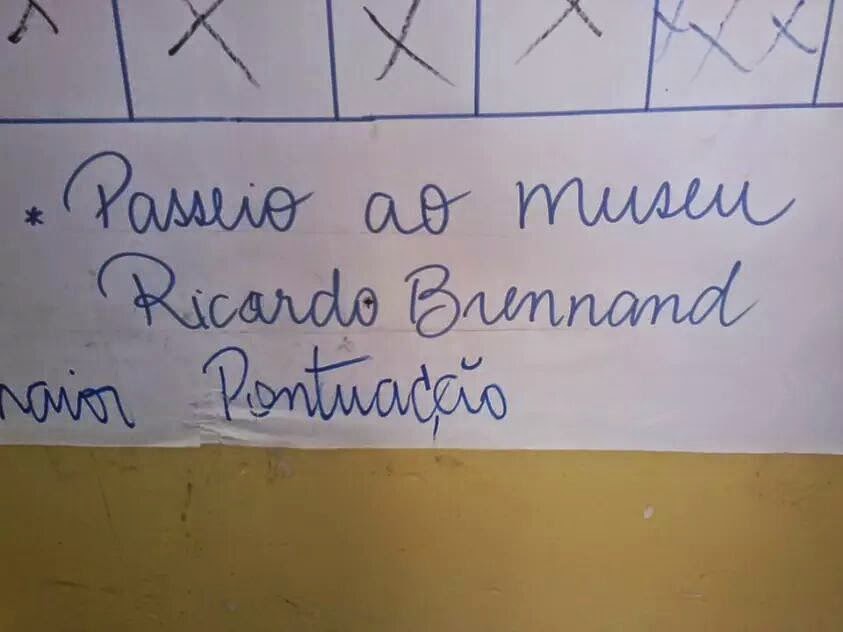 X X X X X X X
* Passeio ao museu
Ricardo Brennand
maior Pontuação